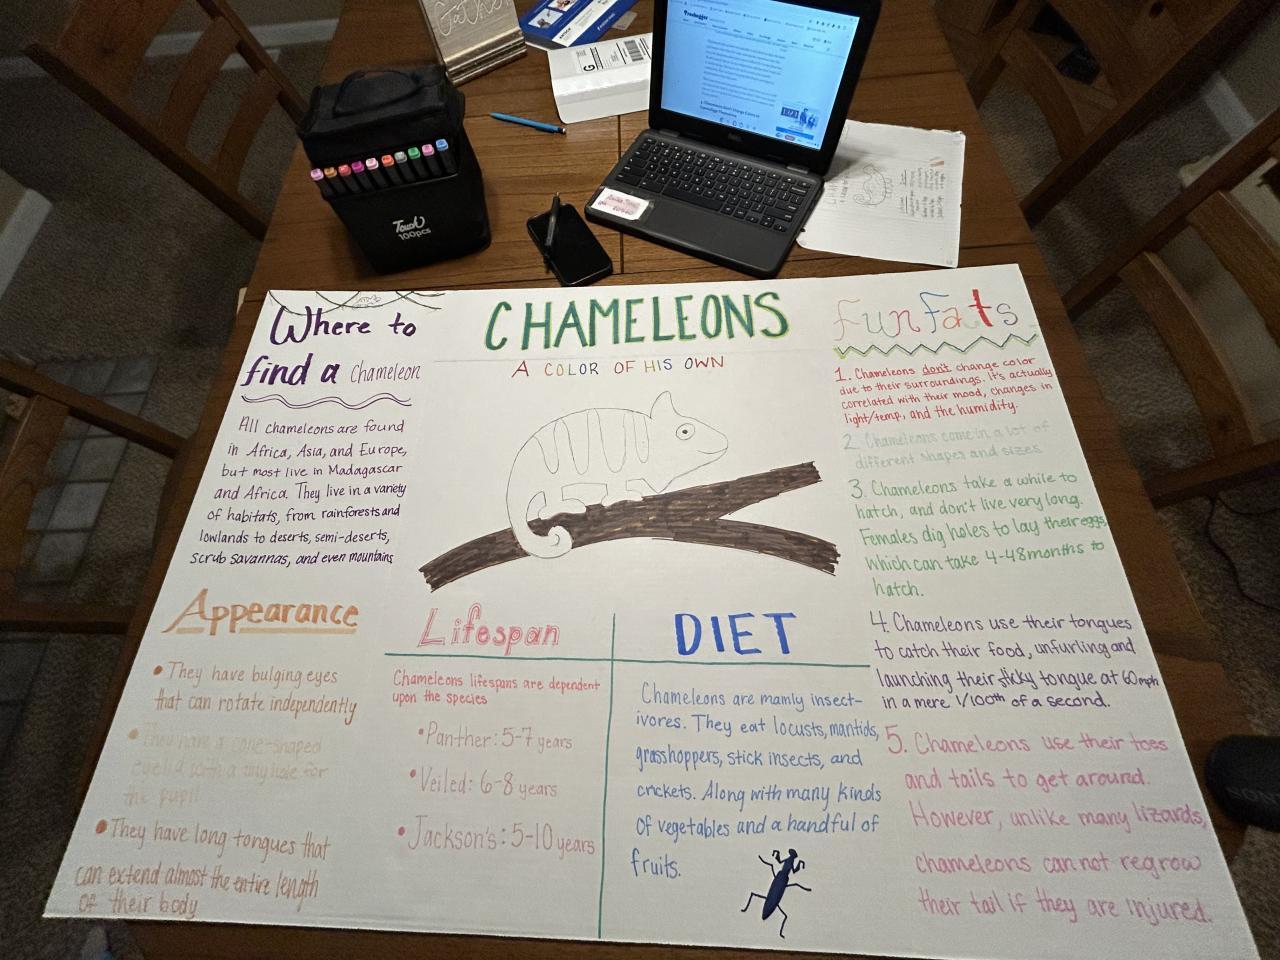 Touch
100pcs
DELL
Where to
find a Chameleon
All chameleons are found
in Africa, Asia, and Europe,
but most live in Madagascar
and Africa. They live in a variety
of habitats, from rainforests and
lowlands to deserts, semi-deserts,
scrub savannas, and even mountains
CHAMELEONS
A COLOR OF HIS OWN
Fun Fats
1. Chameleons don't change color
due to their surroundings. It's actually
correlated with their mood, changes in
light/temp, and the humidity.
2. Chameleons come in a lot of
different shapes and sizes
3. Chameleons take a while to
hatch, and don't live very long.
Females dig holes to lay their eggs,
which can take 4-48 months to
hatch.
4. Chameleons use their tongues
to catch their food, unfurling and
launching their sticky tongue at 60mph
in a mere 1/100th of a second.
5. Chameleons use their toes
and tails to get around.
However, unlike many lizards,
chameleons can not regrow
their tail if they are injured.
Appearance
• They have bulging eyes
that can rotate independently
• They have a cone-shaped
eyelid with a tiny hole for
the pupil
• They have long tongues that
can extend almost the entire length
of their body
Lifespan
Chameleons lifespans are dependent
upon the species
• Panther: 5-7 years
• Veiled: 6-8 years
• Jackson's: 5-10 years
DIET
Chameleons are mamly insect-
ivores. They eat locusts, mantids,
grasshoppers, stick insects, and
crickets. Along with many kinds
of vegetables and a handful of
fruits.
SONY